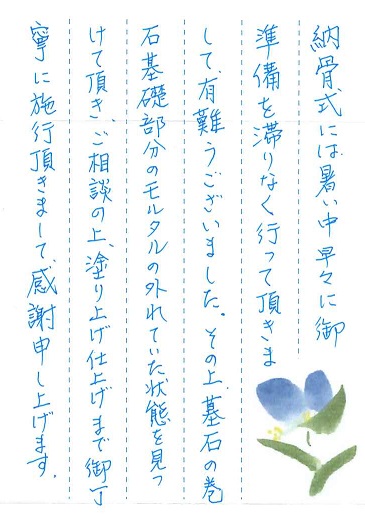 納骨式には、暑い中早々に御
準備を滞りなく行って頂きま
して、有難うございました。その上、墓石の巻
石基礎部分のモルタルの外れていた状態を見つ
けて頂き、ご相談の上、塗り上げ仕上げまで御丁
寧に施行頂きまして、感謝申し上げます。